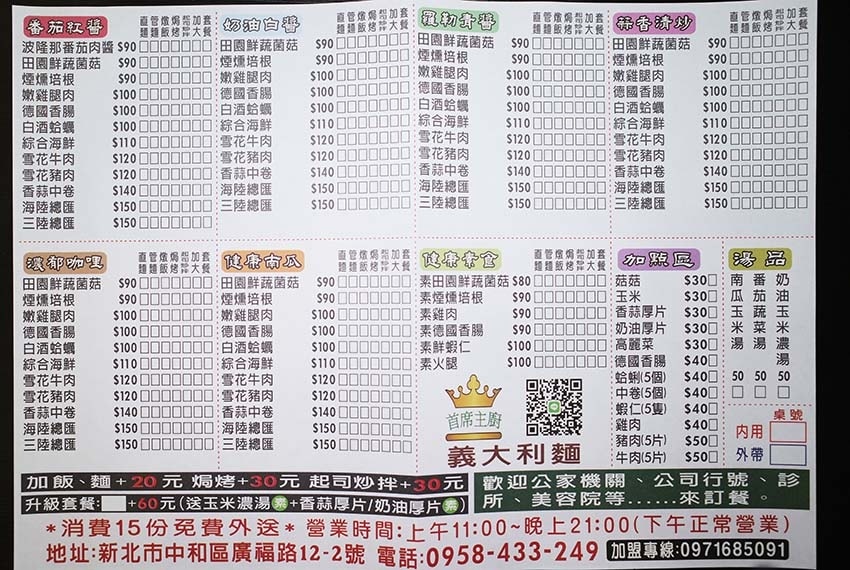 番茄紅醬 直麵 管麵 燉飯 焗烤 起司炒拌 加大 套餐
波隆那番茄肉醬 $90
田園鮮蔬菌菇 $90
煙燻培根 $90
嫩雞腿肉 $100
德國香腸 $100
白酒蛤蠣 $100
綜合海鮮 $110
雪花牛肉 $120
雪花豬肉 $120
香蒜中卷 $140
海陸總匯 $150
三陸總匯 $150
奶油白醬 直麵 管麵 燉飯 焗烤 起司炒拌 加大 套餐
田園鮮蔬菌菇 $90
煙燻培根 $90
嫩雞腿肉 $100
德國香腸 $100
白酒蛤蠣 $100
綜合海鮮 $110
雪花牛肉 $120
雪花豬肉 $120
香蒜中卷 $140
海陸總匯 $150
三陸總匯 $150
羅勒青醬 直麵 管麵 燉飯 焗烤 起司炒拌 加大 套餐
田園鮮蔬菌菇 $90
煙燻培根 $90
嫩雞腿肉 $100
德國香腸 $100
白酒蛤蠣 $100
綜合海鮮 $110
雪花牛肉 $120
雪花豬肉 $120
香蒜中卷 $140
海陸總匯 $150
三陸總匯 $150
蒜香清炒 直麵 管麵 燉飯 焗烤 起司炒拌 加大 套餐
田園鮮蔬菌菇 $90
煙燻培根 $90
嫩雞腿肉 $100
德國香腸 $100
白酒蛤蠣 $100
綜合海鮮 $110
雪花牛肉 $120
雪花豬肉 $120
香蒜中卷 $140
海陸總匯 $150
三陸總匯 $150
濃郁咖哩 直麵 管麵 燉飯 焗烤 起司炒拌 加大 套餐
田園鮮蔬菌菇 $90
煙燻培根 $90
嫩雞腿肉 $100
德國香腸 $100
白酒蛤蠣 $100
綜合海鮮 $110
雪花牛肉 $120
雪花豬肉 $120
香蒜中卷 $140
海陸總匯 $150
三陸總匯 $150
健康南瓜 直麵 管麵 燉飯 焗烤 起司炒拌 加大 套餐
田園鮮蔬菌菇 $90
煙燻培根 $90
嫩雞腿肉 $100
德國香腸 $100
白酒蛤蠣 $100
綜合海鮮 $110
雪花牛肉 $120
雪花豬肉 $120
香蒜中卷 $140
海陸總匯 $150
三陸總匯 $150
健康素食 直麵 管麵 燉飯 焗烤 起司炒拌 加大 套餐
素田園鮮蔬菌菇 $80
素煙燻培根 $90
素雞肉 $90
素德國香腸 $90
素鮮蝦仁 $100
素火腿 $100
首席主廚
義大利麵
加點區
菇菇 $30
玉米 $30
香蒜厚片 $30
奶油厚片 $30
高麗菜 $30
德國香腸 $40
蛤蜊(5個) $40
中卷(5個) $40
蝦仁(5隻) $40
雞肉 $40
豬肉(5片) $50
牛肉(5片) $50
湯品
南瓜玉米湯 50
番茄蔬菜湯 50
奶油玉米濃湯 50
桌號
內用
外帶
加飯、麵+20元 焗烤+30元 起司炒拌+30元
升級套餐: +60元(送玉米濃湯素+香蒜厚片/奶油厚片素)
歡迎公家機關、公司行號、診
所、美容院等......來訂餐。
*消費15份免費外送* 營業時間:上午11:00~晚上21:00(下午正常營業)
地址:新北市中和區廣福路12-2號 電話:0958-433-249 加盟專線:0971685091